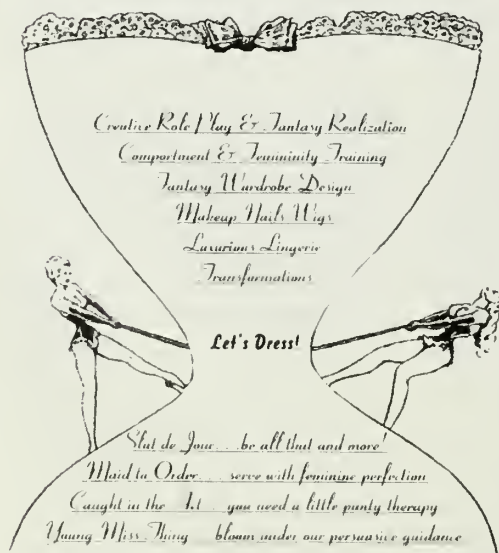 Creative Role Play & Fantasy Realization
Comportment & Femininity Training
Fantasy Wardrobe Design
Makeup Nails Wigs
Luxurious Lingerie
Transformations
Let's Dress!
Slut de Jour... be all that and more!
Maid to Order.... serve with feminine perfection
Caught in the Act... you need a little panty therapy
Young Miss Thing bloom under our persuasive guidance